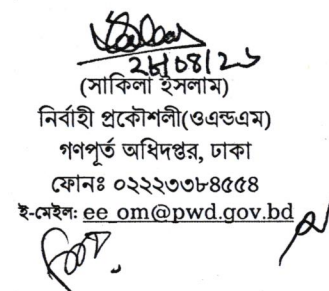 (সাকিলা ইসলাম)
নির্বাহী প্রকৌশলী(ওএন্ডএম)
গণপূর্ত অধিদপ্তর, ঢাকা
ফোনঃ ০২২২৩৩৮৪৫৫৪
ই-মেইল: ee_om@pwd.gov.bd